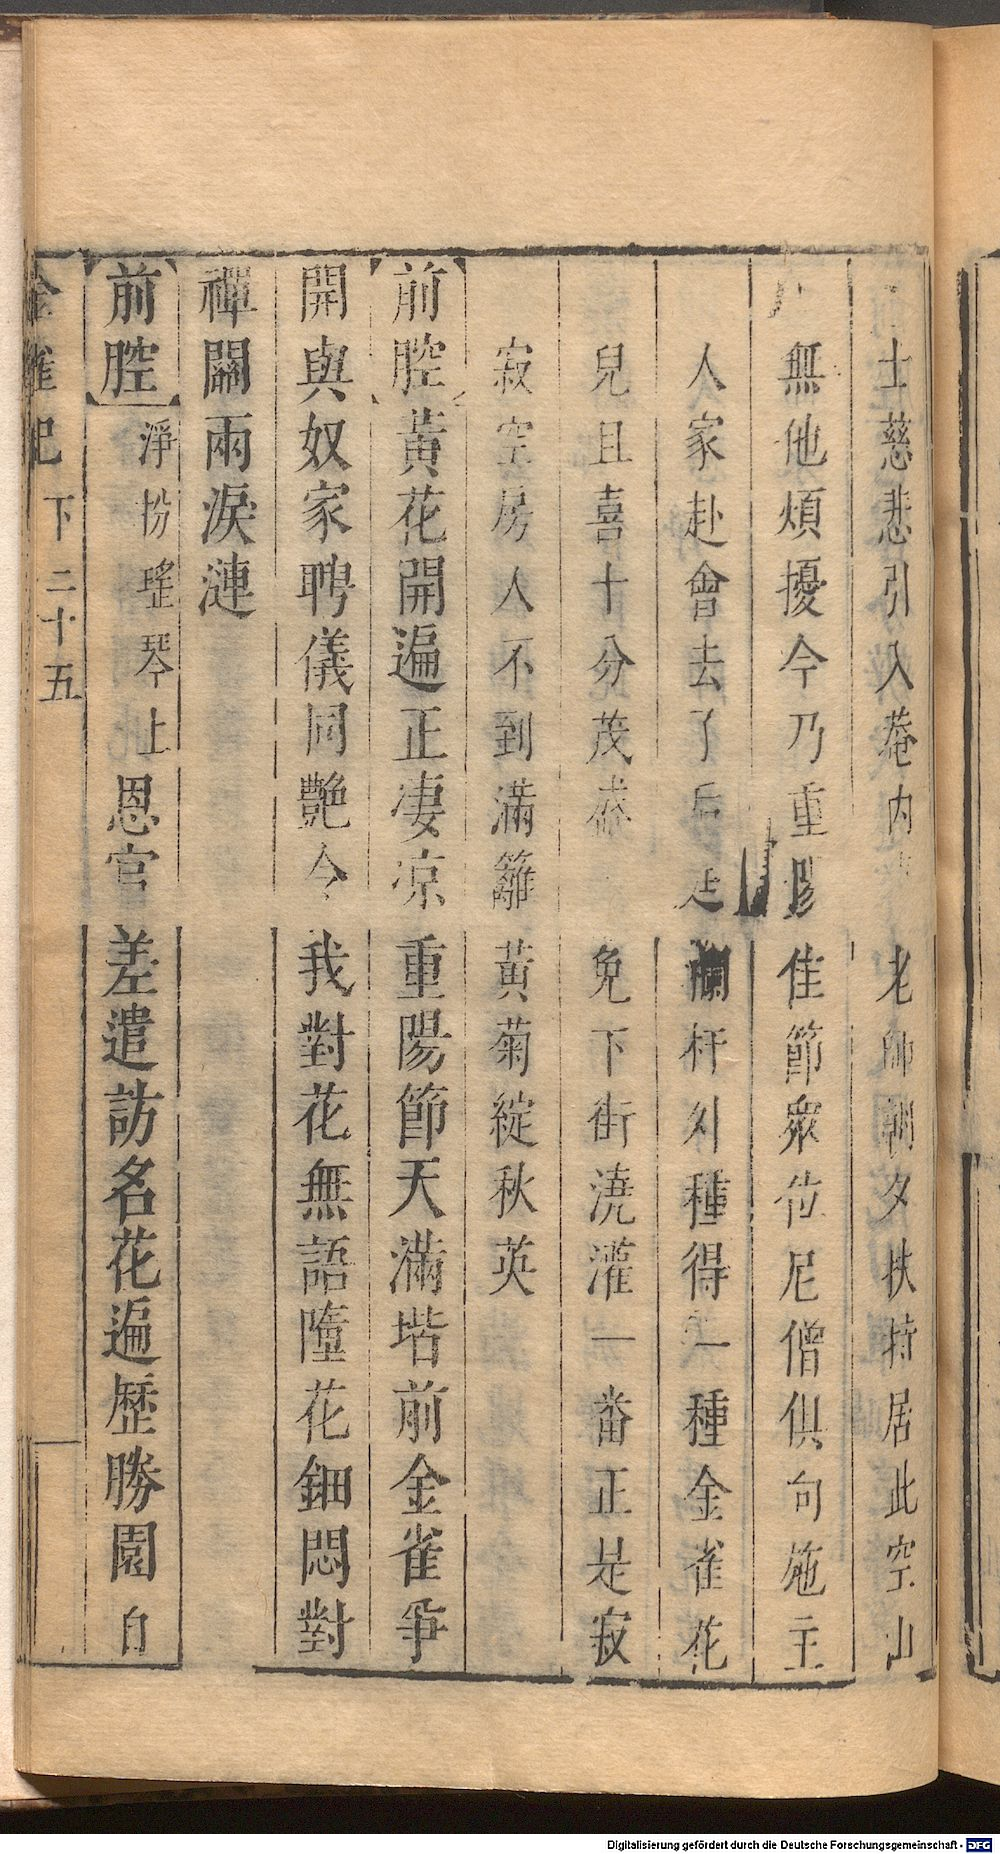 士慈悲引入菴内老師朝夕扶持居此空山
無他煩擾今乃重陽佳節衆位尼僧俱向施主
人家赴會去了后邊欄杆外種得一種金雀花
兒且喜十分茂盛免下街澆灌一番正是寂
寂空房人不到滿籬黃菊綻秋英
前腔黃花開遍正凄凉重陽節天滿堦前金雀爭
開與奴家聘儀同艷今我對花無語墮花鈿悶對
禪關兩淚漣
前腔淨扮瑤琴上恩官差遣訪名花遍歷勝園自
金雀記 下 二十五
Digitalisierung gefördert durch die Deutsche Forschungsgemeinschaft - DFG